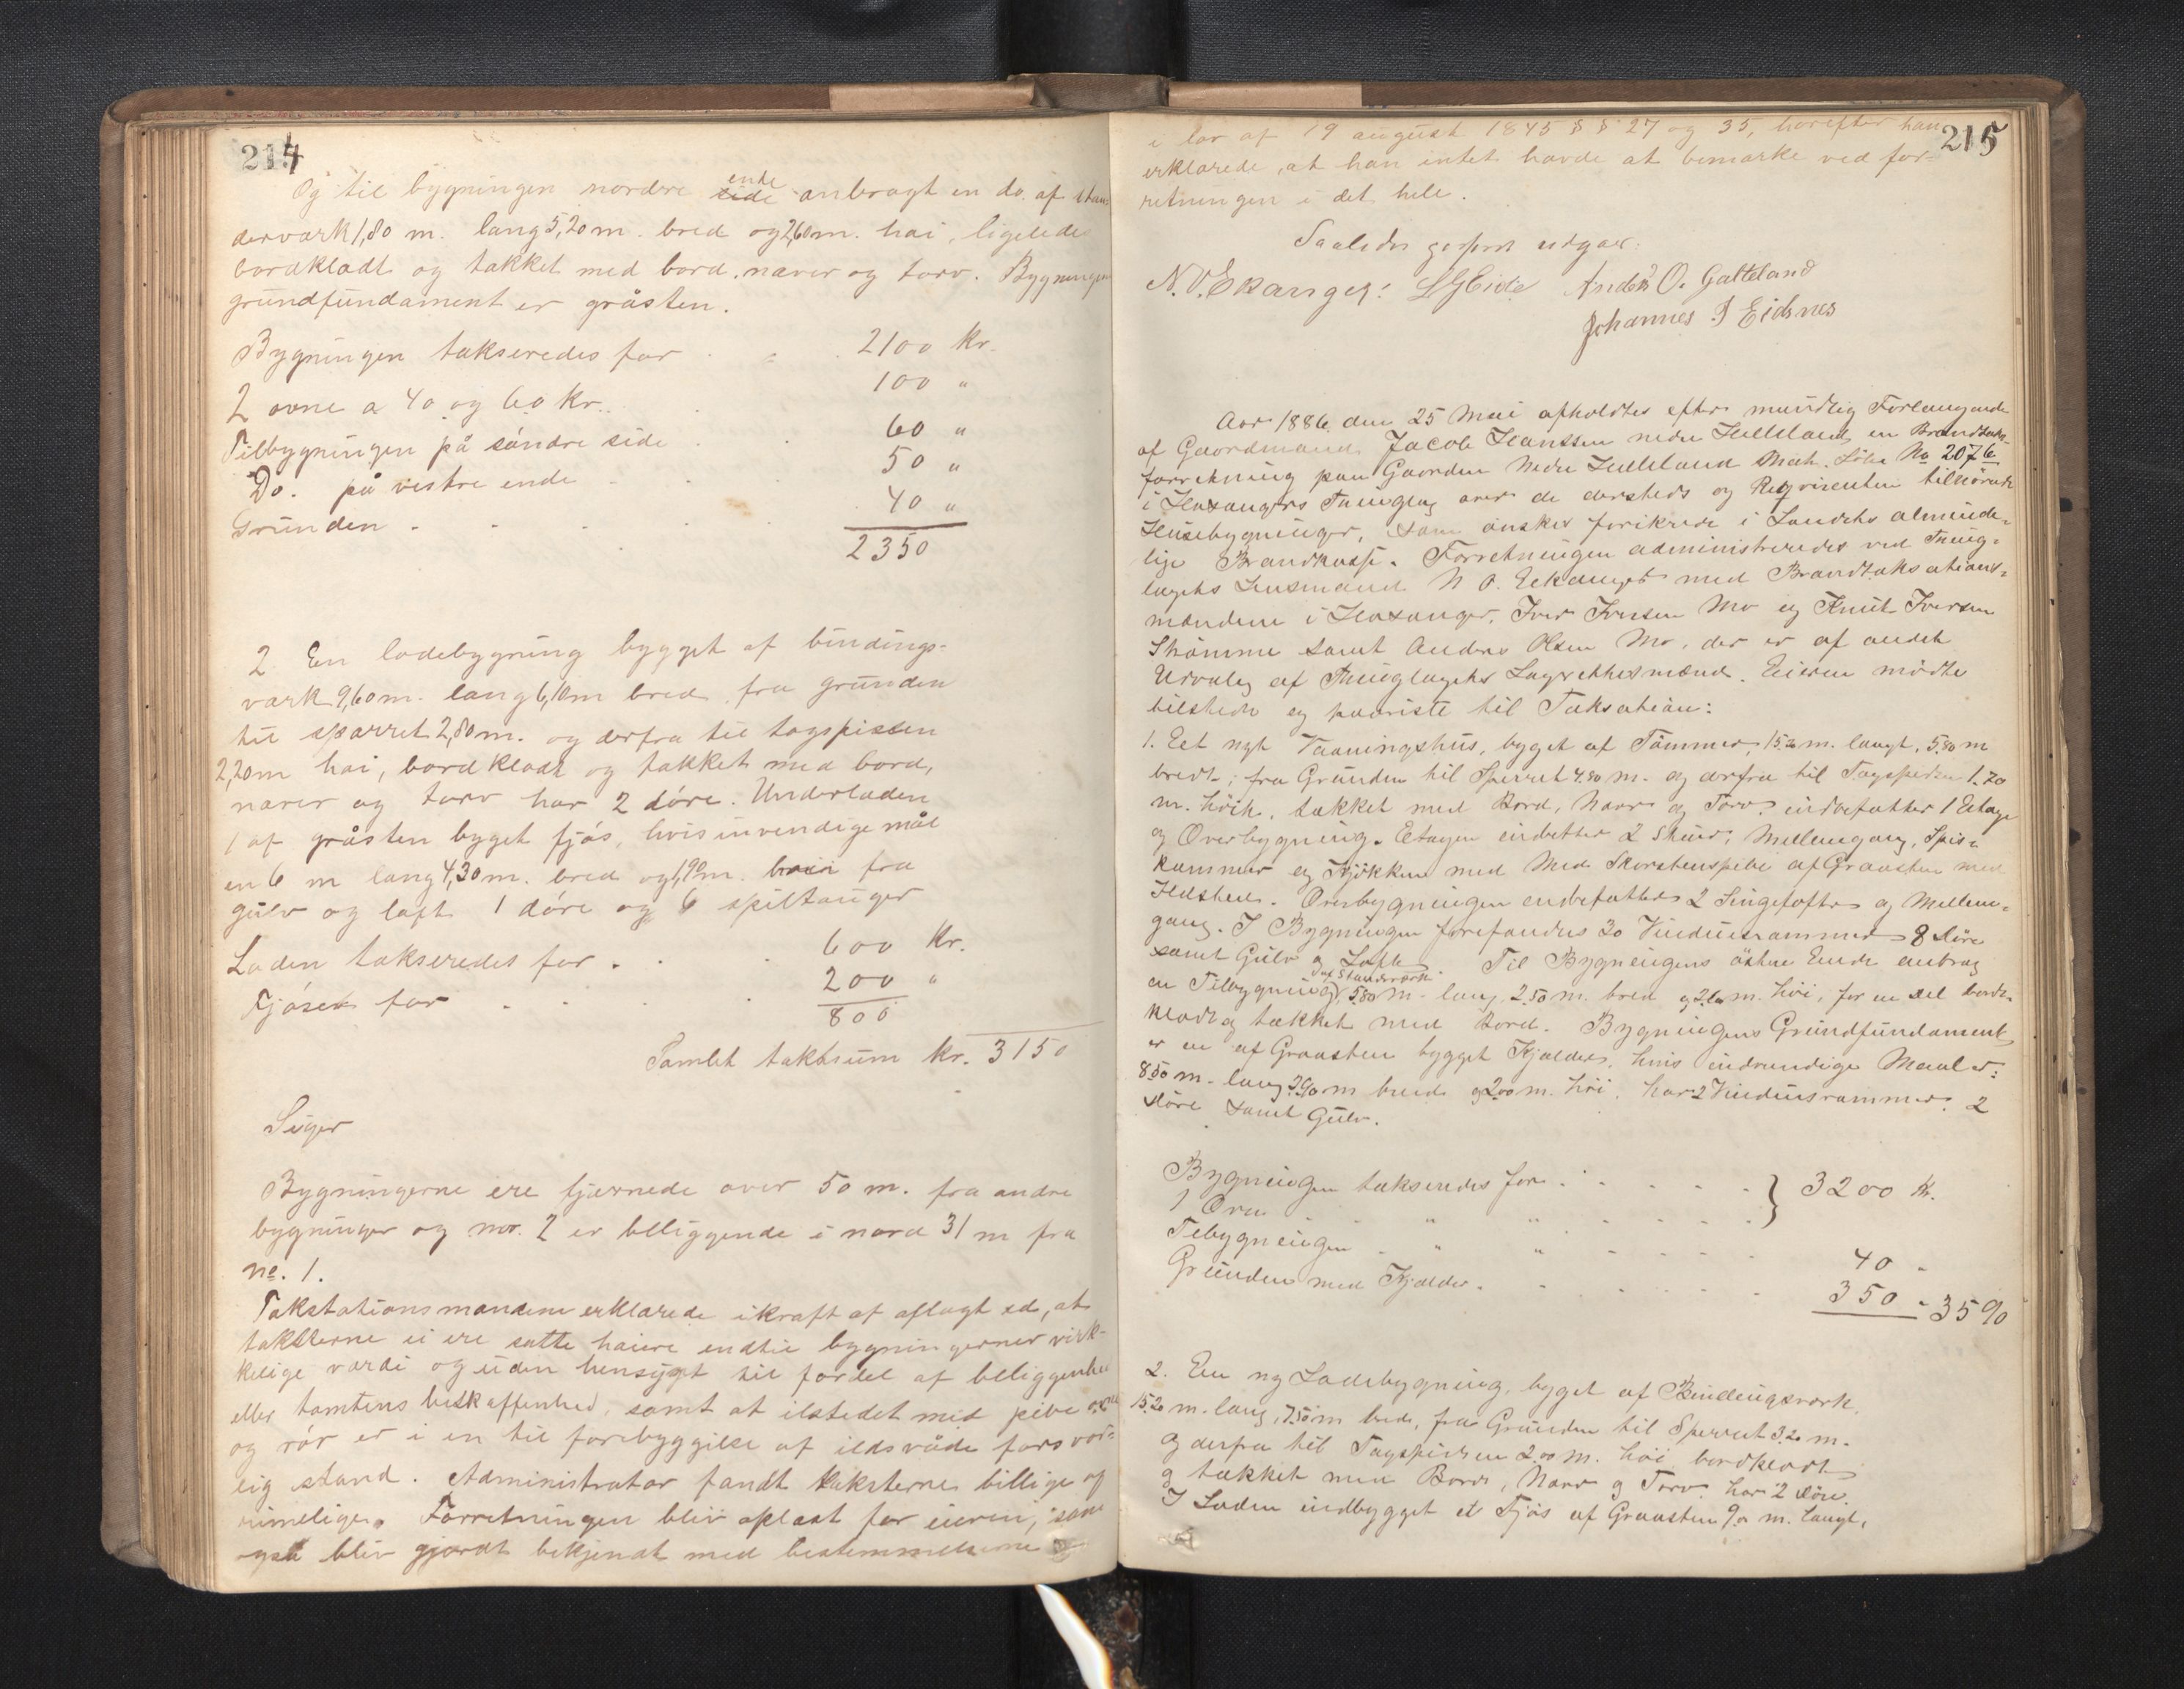 214
Og til bygningen nordre ende anbragt en do. af stan
derværk 1,80 m. lang 5,20 m. bred og 2,60 m. høi, ligeledes
bordklædt og tækket med bord, næver og torv. Bygningens
grundfundament er gråsten.
Bygningen takseredes for . . . 2100 Kr.
2 ovne a 40 og 60 Kr. . 100 "
Tilbygningen på søndre side . . 60 "
Do. på vestre ende . . . 50 "
Grunden . . . . 40 "
2350
2. En ladebygning bygget af bindings-
værk 9,60 m. lang 6,10 m bred, fra grunden
til sparret 2,80 m. og derfra til tagspissen
2,20 m høi, bordklædt og takket med bord,
næver og torv har 2 döre. Underladen
1 af gråsten byget fjøs, hvis invendige mål
en 6 m lang 4,30 m. bred og 1,90 m. høi fra
gulv og loft 1 döre og 6 spiltauger
Laden takseredes for . . . 600 Kr.
Fjøset for . . . . 200 "
800
Samlet takstsum Kr. 3150
Siger
Bygningerne ere fjærnede over 50 m. fra andre
bygninger og no. 2 er beliggende i nord 31 m fra
No. 1.
Takstationsmændene erklærede i kraft af aflagt ed, at
taksterne ei ere satte høiere end til bygningernes virk-
kelige værdi og uden hensygt til fordel af beliggenhed
eller tomtens beskaffenhed, samt at ildstedet med pibe
og rör er i en til forebyggilse af ildsvåde forsvar-
lig stand. Administrator fandt taksterne billige og
rimelige. Forretningen blev oplæst for eieren, som
også blev gjordt bekjendt med bestemmelserne
215
i lov af 19 august 1845 § § 27 og 35, hvorefter han
erklærede, at han intet havde at bemærke ved for-
retningen i det hele.
Saaledes passeret udgaar.
N. O. Ekanger. L G Eide Anders O. Galteland
Johannes J Eidsnes
Aar 1886 den 25 Mai afholdtes efter mundtlig Forlangende
af Gaardmand Jacob Hanssen nedre Helleland en Brandtaks-
forretning paa Gaarden Nedre Helleland Matr. Löbe No 207 b
i Hosangers Thinglag over de dersteds og Reqvirenten tilhörende
Husebygninger, som önskes forsikrede i Landets alminde-
lige Brandkasse. Forretningen administreredes ved Thing-
lagets Lensmand N O. Eekanger med Brandtaksations-
mændene i Hosanger, Iver Iversen Mo og Knut Iversen
Skomme samt Anders Olsen Mo, der er af andet
Udvalg af Thinglagets Lagrettesmænd. Eieren mödte
tilstede og paaviste til Taksation:
1. Eet nyt Vaaningshus, bygget af Tömmer, 15.20 m. langt, 5.80 m
bredt, fra Grunden til Sperret 4.30 m. og derfra til Tagspidsen 1.70
m. höit, takket med Bord, Næver og Torv, indbefatter 1 Etage
og Overbygning. Etagen indretter 2 Stuer, Mellemgang, Spis-
kammer og Kjökken med Skorstenspibe af Graasten med
Ildsted. Overbygningen indbefatter 2 Sengelofter og Mellem-
gang. I Bygningen forefandtes 30 Vinduesrammer 8 Döre
samt Gulv og Loft. Til Bygningens östre Ende anbrag
en Tilbygning af Standerværk 5.80 m. lang, 2.50 m. bred og 2.60 m. höi, for en Del bord-
klædt og tækket med Bord. Bygningens Grundfundament
er en af Graasten bygget Kjælder, hvis indvendige Maal er:
8.50 m. lang 3.90 m bred og 2.00 m. höi, har 2 Vinduesrammer, 2
Döre samt Gulv.
Bygningen takseredes for . . . . . } 3200 Kr.
1 Ovn . . " " . . .
Tilbygningen . " " . . . . 40 "
Grunden med Kjælder . . . . . . 350 " 3590
2. En ny Ladebygning, bygget af Bindingsværk,
15.20 m. lang, 7.50 m bred, fra Grunden til Sperret 3.20 m.
og derfra til Tagspidsen 2.00 m. höi, bordklædt
og tækket med Bord, Næver og Torv, har 2 Döre.
I Laden indbygget et Fjös af Graasten 9.0 m. langt,